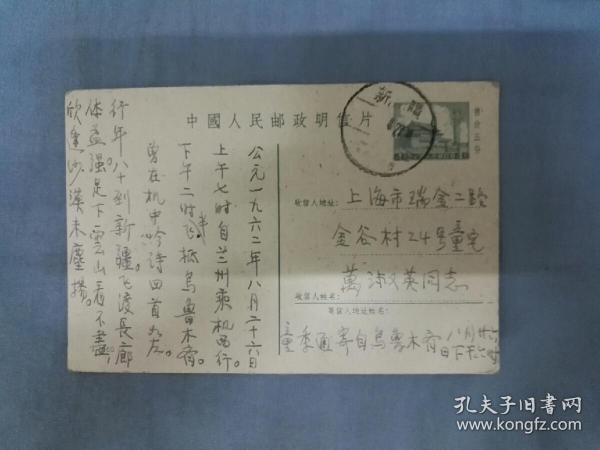 中國人民邮政明信片
售价五分
新疆
收信人地址:
上海市瑞金二路
金谷村24号童宅
萬淑英同志
收信人姓名:
寄信人地址姓名:
童季通寄自烏魯木齐
八月廿六
日下午六时
公元一九六二年八月二十六日
上午七时自兰州乘机西行。
下午二时半飞抵烏魯木齐。
曾在机中吟诗四首如左。
行年八十到新疆。飞渡長廊
体益强。足下雲山看不盡,
欣逢沙漠未塵揚。
孔夫子旧书网
www.kongfz.com